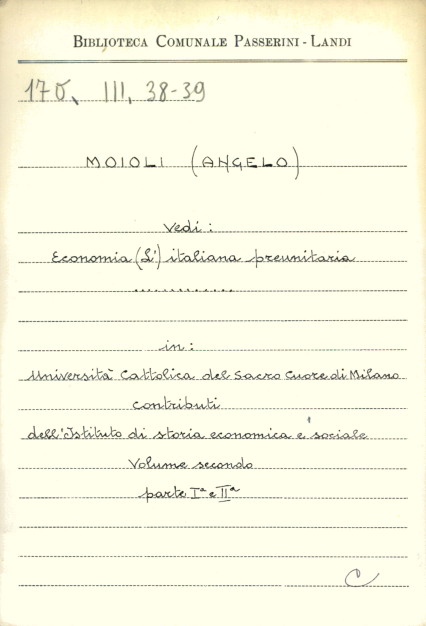 BIBLIOTECA COMUNALE PASSERINI - LANDI
170, III, 38-39
MOIOLI (ANGELO)
Vedi:
Economia (L') italiana preunitaria
.............
in:
Università Cattolica del Sacro Cuore di Milano
contributi
dell'Istituto di storia economica e sociale
Volume secondo
parte Iª e IIª
C